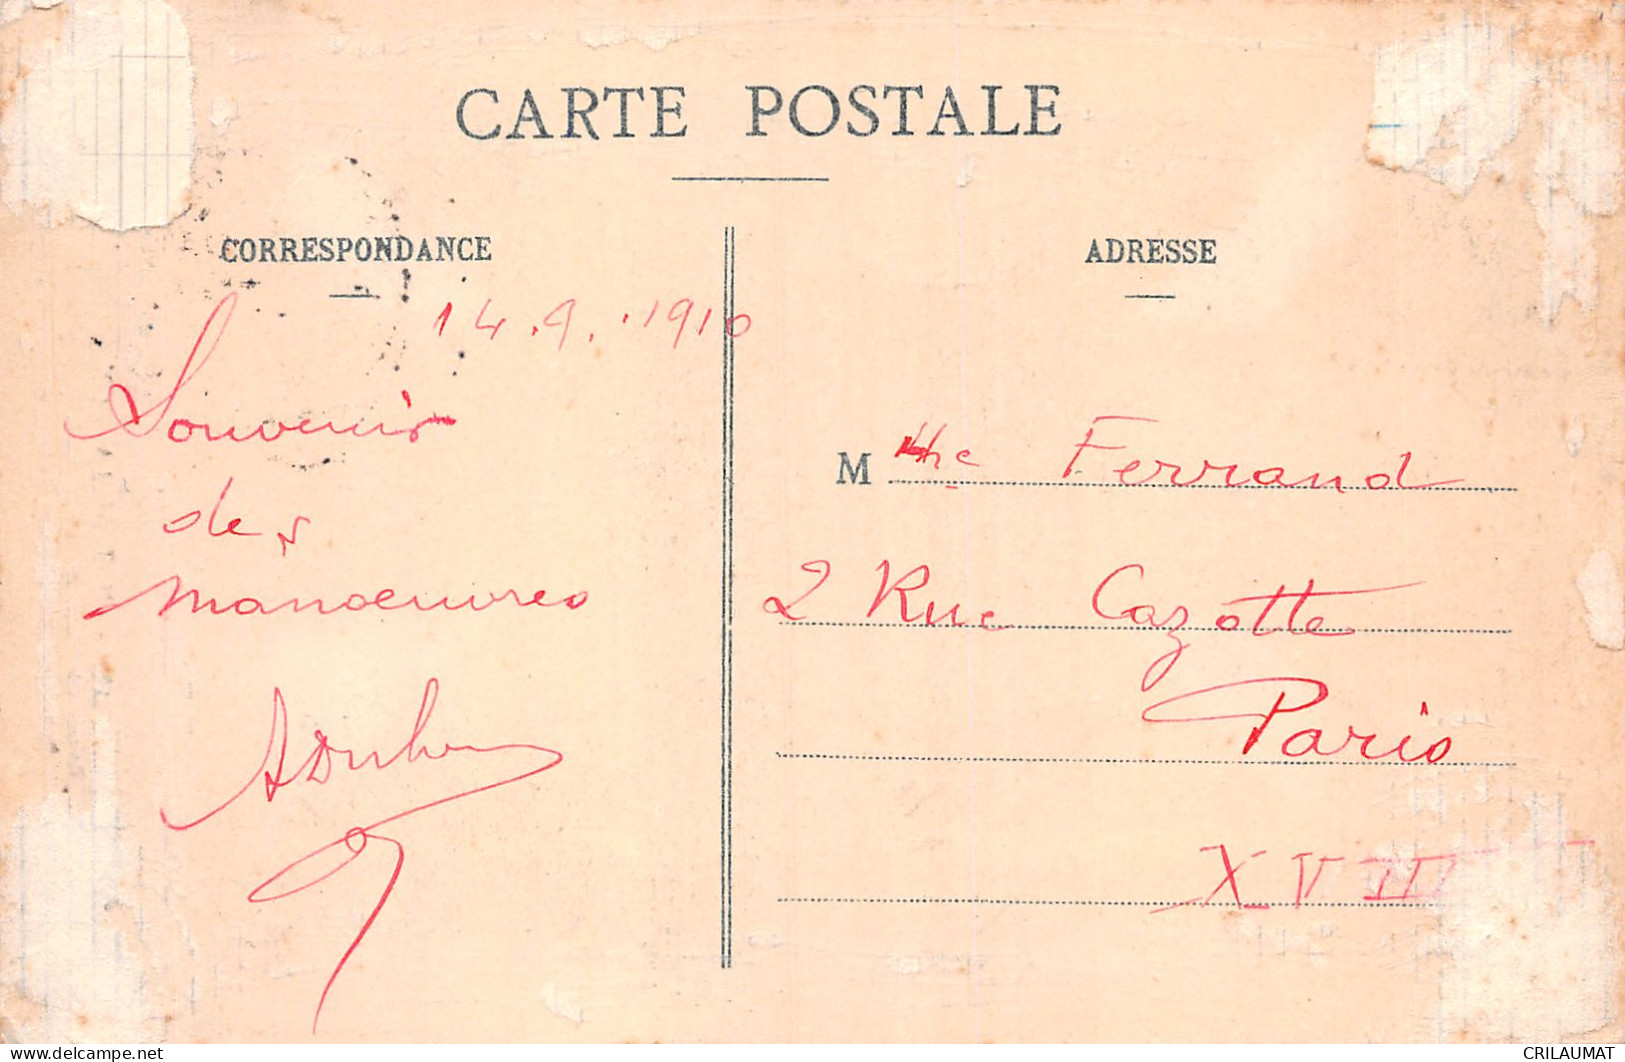 CARTE POSTALE
CORRESPONDANCE
ADRESSE
14.9.1910
Souvenir
des
manoeuvres
Mme Ferrand
2 Rue Cazotte
Paris
XVIII
delcampe.net
CRILAUMAT